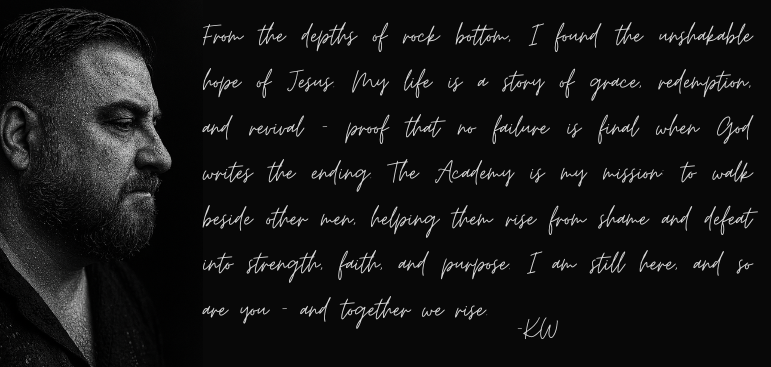 From the depths of rock bottom, I found the unshakable
hope of Jesus. My life is a story of grace, redemption,
and revival - proof that no failure is final when God
writes the ending. The Academy is my mission: to walk
beside other men, helping them rise from shame and defeat
into strength, faith, and purpose. I am still here, and so
are you - and together we rise.
-KW